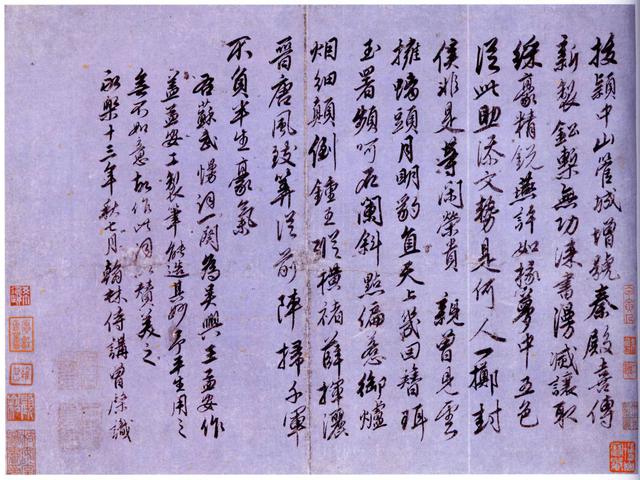 拔颖中山管城增號秦殿喜傳
新製鉛槧無功漆書漫滅讓取
綵豪精銳燕許如椽夢中五色
從此助添文勢是何人一擲封
侯非是等閑榮貴 親曾見雲
擁螭頭月明豹直天上幾回簪珥
玉署頻呵石闌斜點偏惹御爐
烟細顛倒鍾王縱橫褚薛揮灑
晉唐風致筭從前陣掃千軍
不負半生豪氣
右蘇武慢詞一闋為吳興王孟安作
蓋孟安工製筆能造其妙予半生用之
無不如意故作此詞以贊美之
永樂十三年秋七月翰林侍講曾棨識